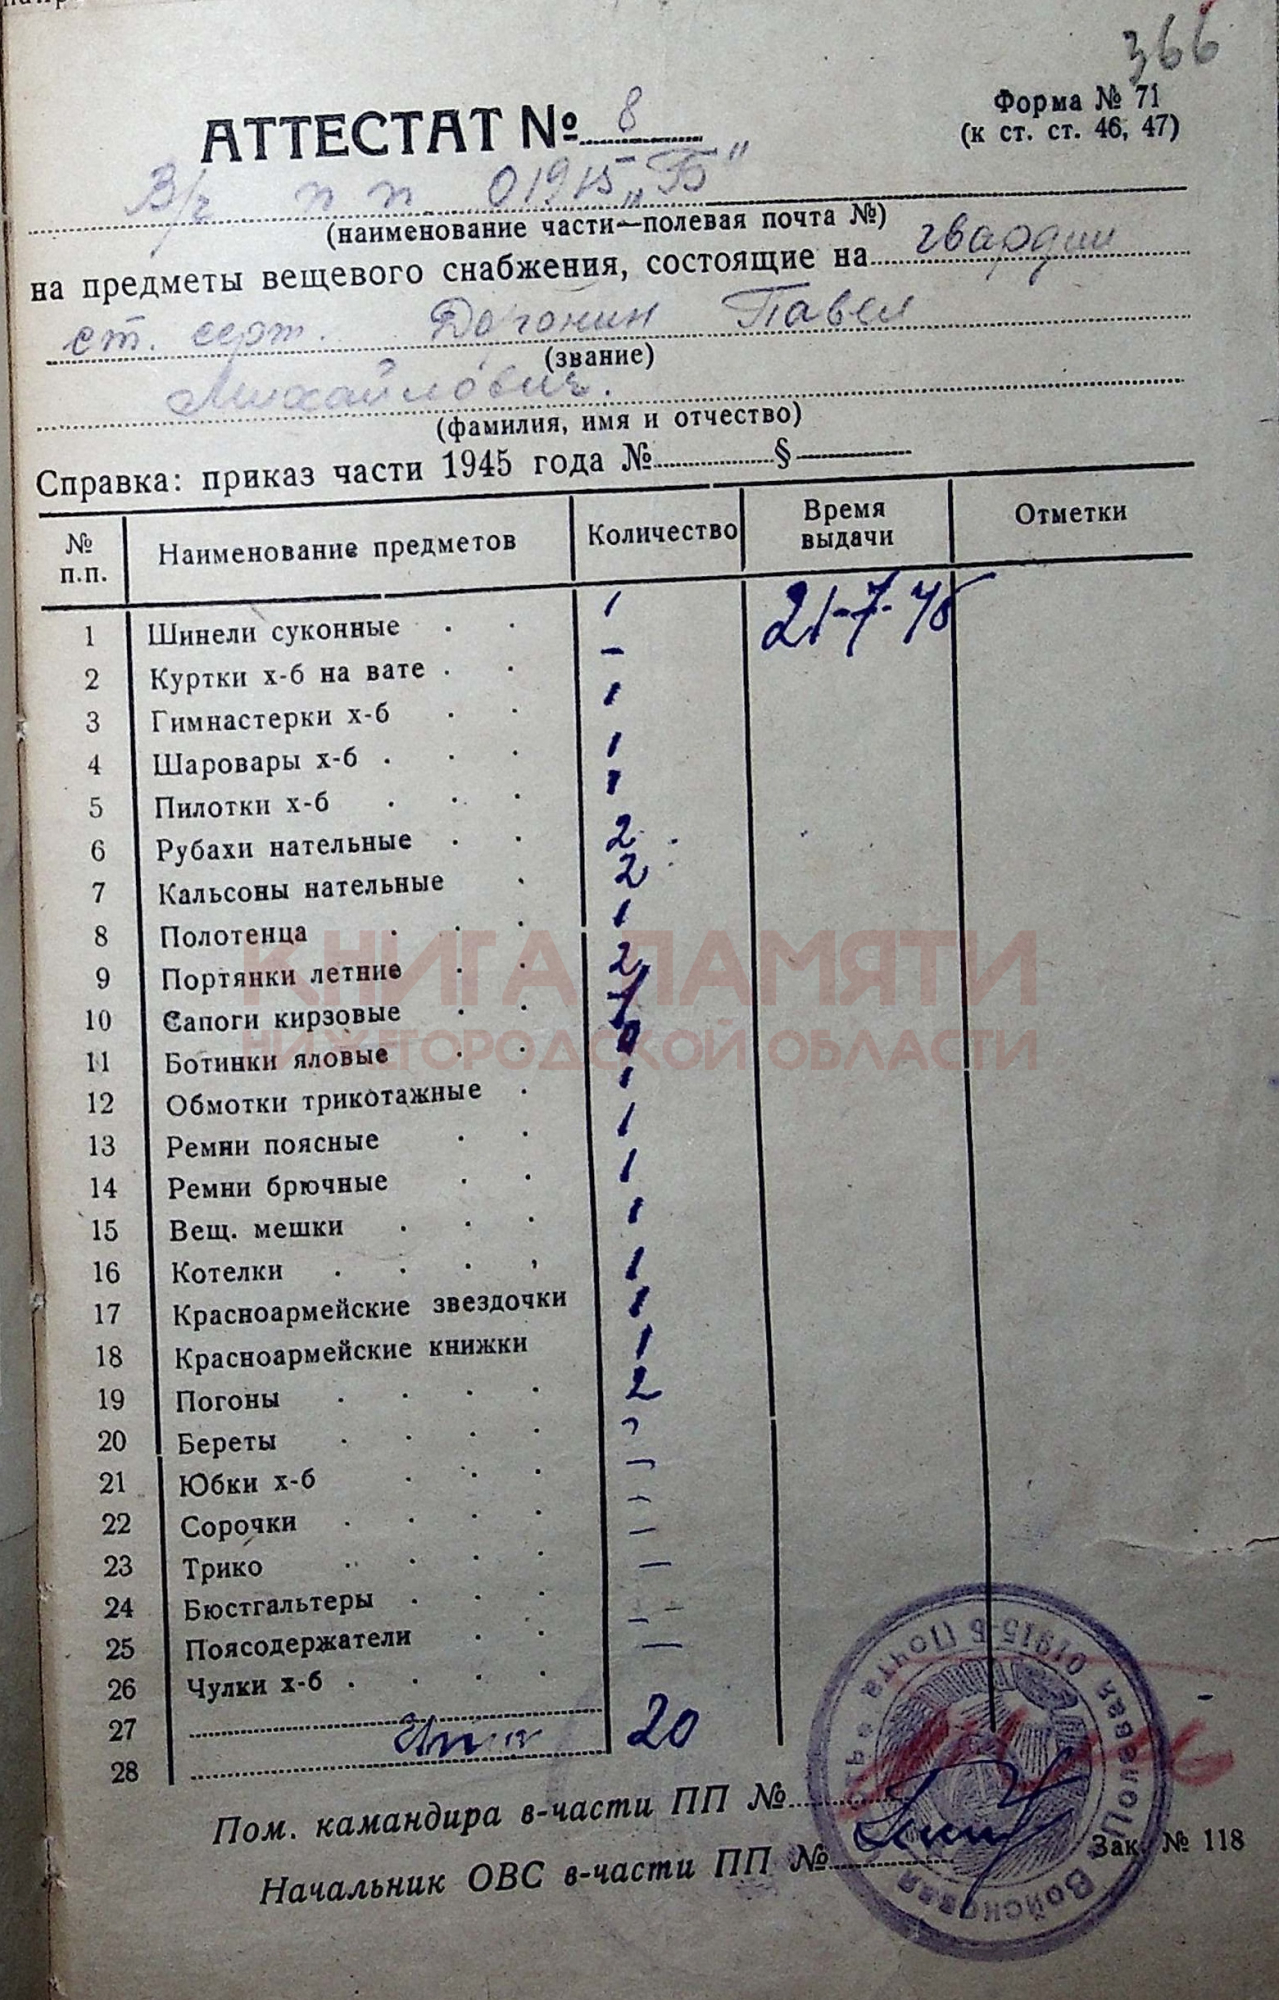 366
АТТЕСТАТ № 8
Форма № 71
(к ст. ст. 46, 47)
В/ч п п 01915 „Б"
(наименование части—полевая почта №)
на предметы вещевого снабжения, состоящие на гвардии
ст. серж. Доронин Павел
(звание)
Михайлович.
(фамилия, имя и отчество)
Справка: приказ части 1945 года № §
№ п.п. Наименование предметов Количество Время выдачи Отметки
1 Шинели суконные 1 21-7-45
2 Куртки х-б на вате –
3 Гимнастерки х-б 1
4 Шаровары х-б 1
5 Пилотки х-б 1
6 Рубахи нательные 2
7 Кальсоны нательные 2
8 Полотенца 1
9 Портянки летние 2
10 Сапоги кирзовые
11 Ботинки яловые
12 Обмотки трикотажные 1
13 Ремни поясные 1
14 Ремни брючные 1
15 Вещ. мешки 1
16 Котелки 1
17 Красноармейские звездочки 1
18 Красноармейские книжки 1
19 Погоны 2
20 Береты
21 Юбки х-б –
22 Сорочки –
23 Трико –
24 Бюстгальтеры –
25 Поясодержатели –
26 Чулки х-б –
27
28 20
Пом. камандира в-части ПП №
Начальник ОВС в-части ПП №
Зак. № 118
Войсковая Полевая Почта 01915-Б
КНИГА ПАМЯТИ
НИЖЕГОРОДСКОЙ ОБЛАСТИ